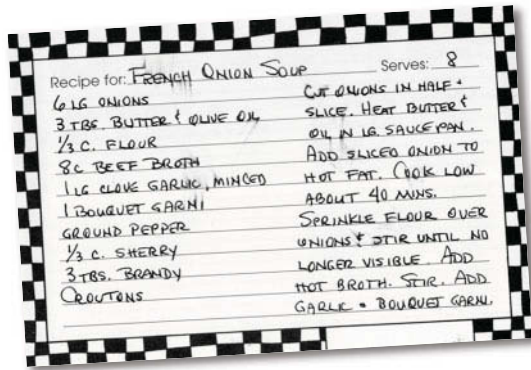 Recipe for: FRENCH ONION SOUP Serves: 8
6 LG ONIONS
3 TBS. BUTTER & OLIVE OIL
1/3 C. FLOUR
8C BEEF BROTH
1 LG CLOVE GARLIC, MINCED
1 BOUQUET GARNI
GROUND PEPPER
1/3 C. SHERRY
3 TBS. BRANDY
CROUTONS
CUT ONIONS IN HALF &
SLICE. HEAT BUTTER &
OIL IN LG. SAUCEPAN.
ADD SLICED ONION TO
HOT FAT. COOK LOW
ABOUT 40 MINS.
SPRINKLE FLOUR OVER
ONIONS & STIR UNTIL NO
LONGER VISIBLE. ADD
HOT BROTH. STIR. ADD
GARLIC & BOUQUET GARNI.